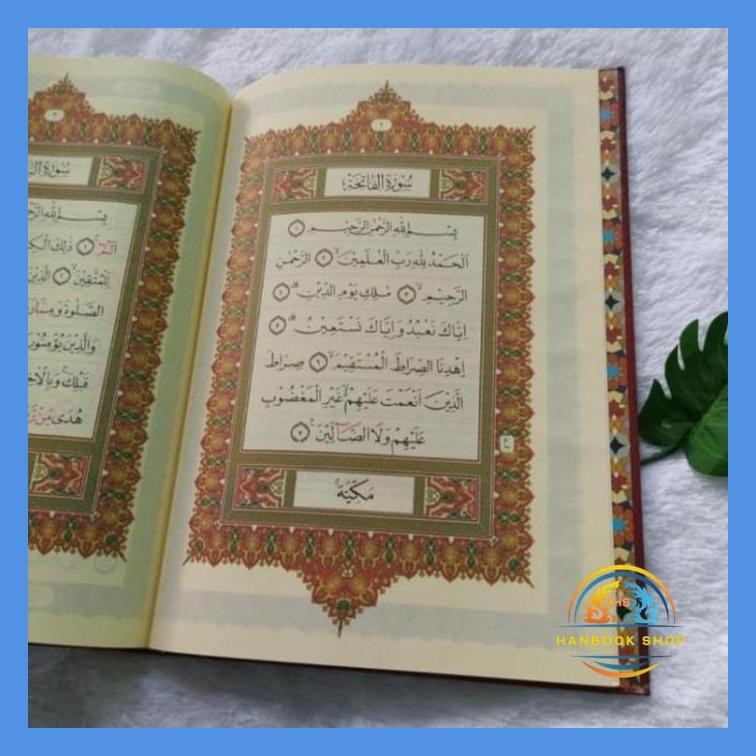 سُوْرَةُ الْفَاتِحَةِ
بِسْمِ اللّٰهِ الرَّحْمٰنِ الرَّحِيْمِ ١
اَلْحَمْدُ لِلّٰهِ رَبِّ الْعٰلَمِيْنَۙ ٢ الرَّحْمٰنِ
الرَّحِيْمِۙ ٣ مٰلِكِ يَوْمِ الدِّيْنِۗ ٤
اِيَّاكَ نَعْبُدُ وَاِيَّاكَ نَسْتَعِيْنُۗ ٥
اِهْدِنَا الصِّرَاطَ الْمُسْتَقِيْمَۙ ٦ صِرَاطَ
الَّذِيْنَ اَنْعَمْتَ عَلَيْهِمْۙ غَيْرِ الْمَغْضُوْبِ
عَلَيْهِمْ وَلَا الضَّاۤلِّيْنَ ٧
مَكِّيَّة
سُوْرَةُ
بِسْمِ اللّٰهِ
الۤمّۤ ١ ذٰلِكَ
لِّلْمُتَّقِيْنَۙ ٢ الَّذِيْنَ
الصَّلٰوةَ وَمِمَّا
وَالَّذِيْنَ يُؤْمِنُوْنَ
قَبْلِكَ وَبِالْاٰ
هُدًى مِّنْ
HS
HANBOOK SHOP